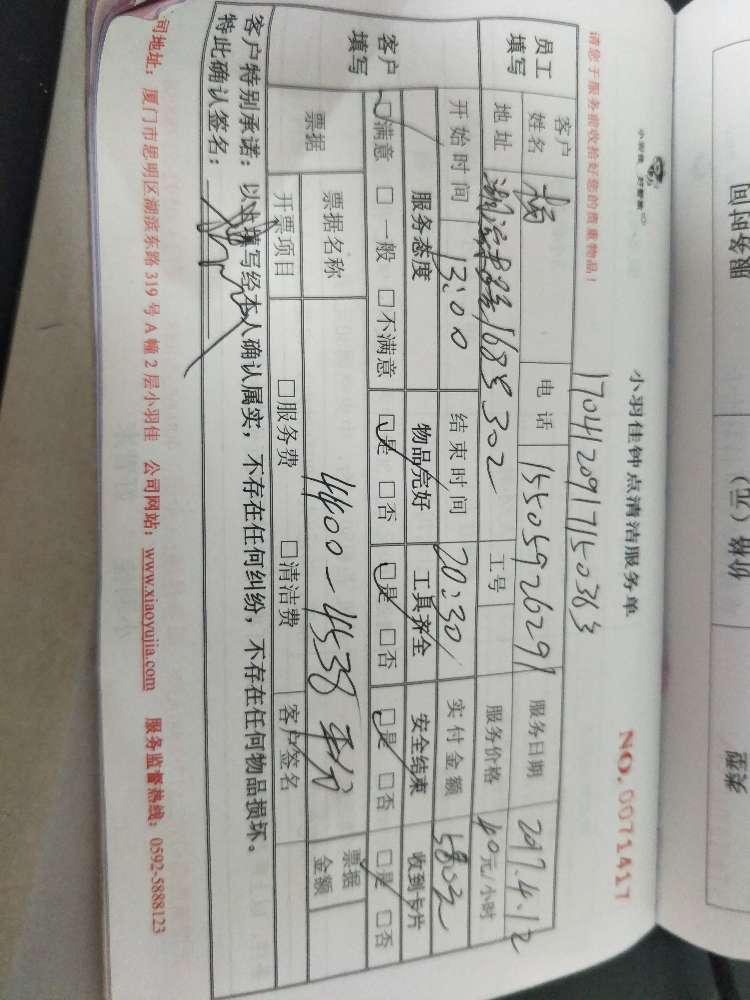 小羽佳 好管家
小羽佳钟点清洁服务单
NO.0071417
请您于服务前收拾好您的贵重物品!
17041209171150363
员工填写
客户姓名 杨 电话 15505926291 服务日期 2017.4.12
地址 168号302 工号 服务价格 40元/小时
开始时间 13:00 结束时间 20:30 实付金额 580元
客户填写
服务态度 物品完好 工具齐全 安全结束 收到卡片
☑满意 □一般 □不满意 ☑是 □否 ☑是 □否 ☑是 □否 ☑是 □否
票据 票据名称 4400-4538 票据金额
开票项目 □服务费 □清洁费 客户签名
客户特别承诺:以上填写经本人确认属实,不存在任何纠纷,不存在任何物品损坏。
特此确认签名:
司地址:厦门市思明区湖滨东路319号A幢2层小羽佳 公司网站:www.xiaoyujia.com 服务监督热线:0592-5888123
服务时间
价格(元)